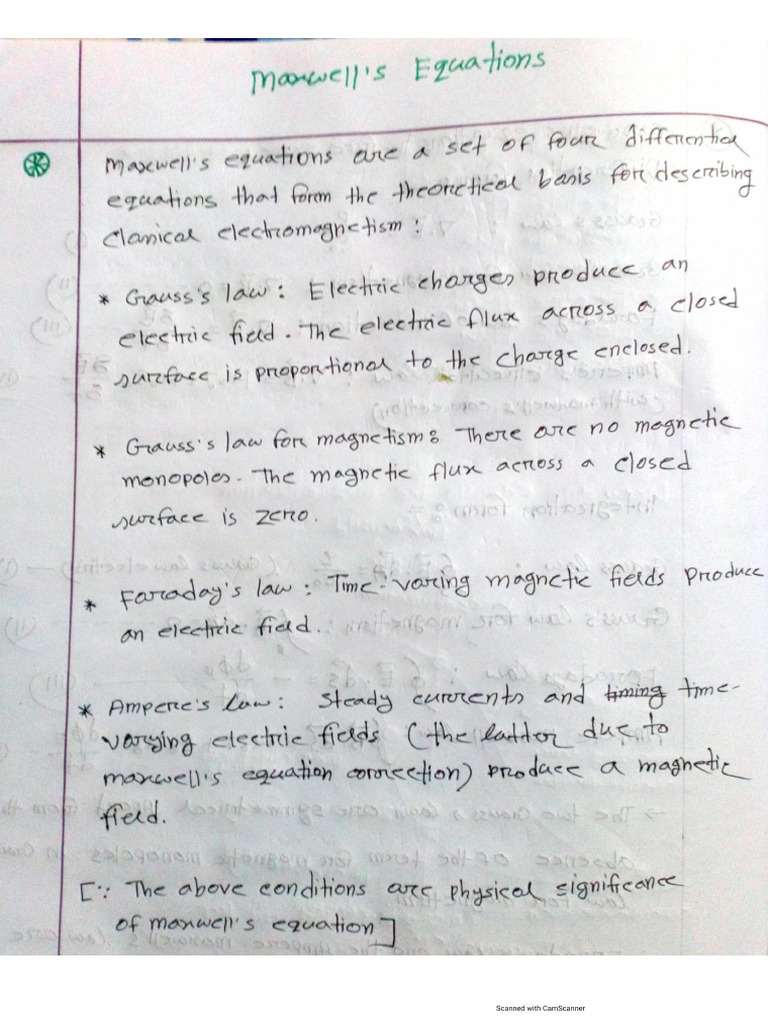 Maxwell's Equations
Maxwell's equations are a set of four differential
equations that form the theoretical basis for describing
classical electromagnetism :
* Gauss's law : Electric charges produce an
electric field. The electric flux across a closed
surface is proportional to the charge enclosed.
* Gauss's law for magnetism : There are no magnetic
monopoles. The magnetic flux across a closed
surface is zero.
* Faraday's law : Time varing magnetic fields produce
an electric field.
* Ampere's law : Steady currents and timing time-
varying electric fields (the latter due to
maxwell's equation correction) produce a magnetic
field.
[∵ The above conditions are physical significance
of maxwell's equation]
Scanned with CamScanner